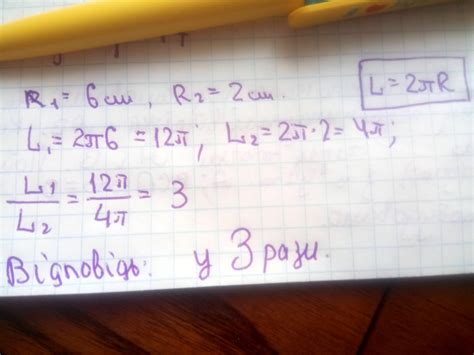 R₁ = 6 см, R₂ = 2 см.
L = 2πR
L₁ = 2π6 = 12π; L₂ = 2π·2 = 4π;
L₁/L₂ = 12π/4π = 3
Відповідь: у 3 рази.